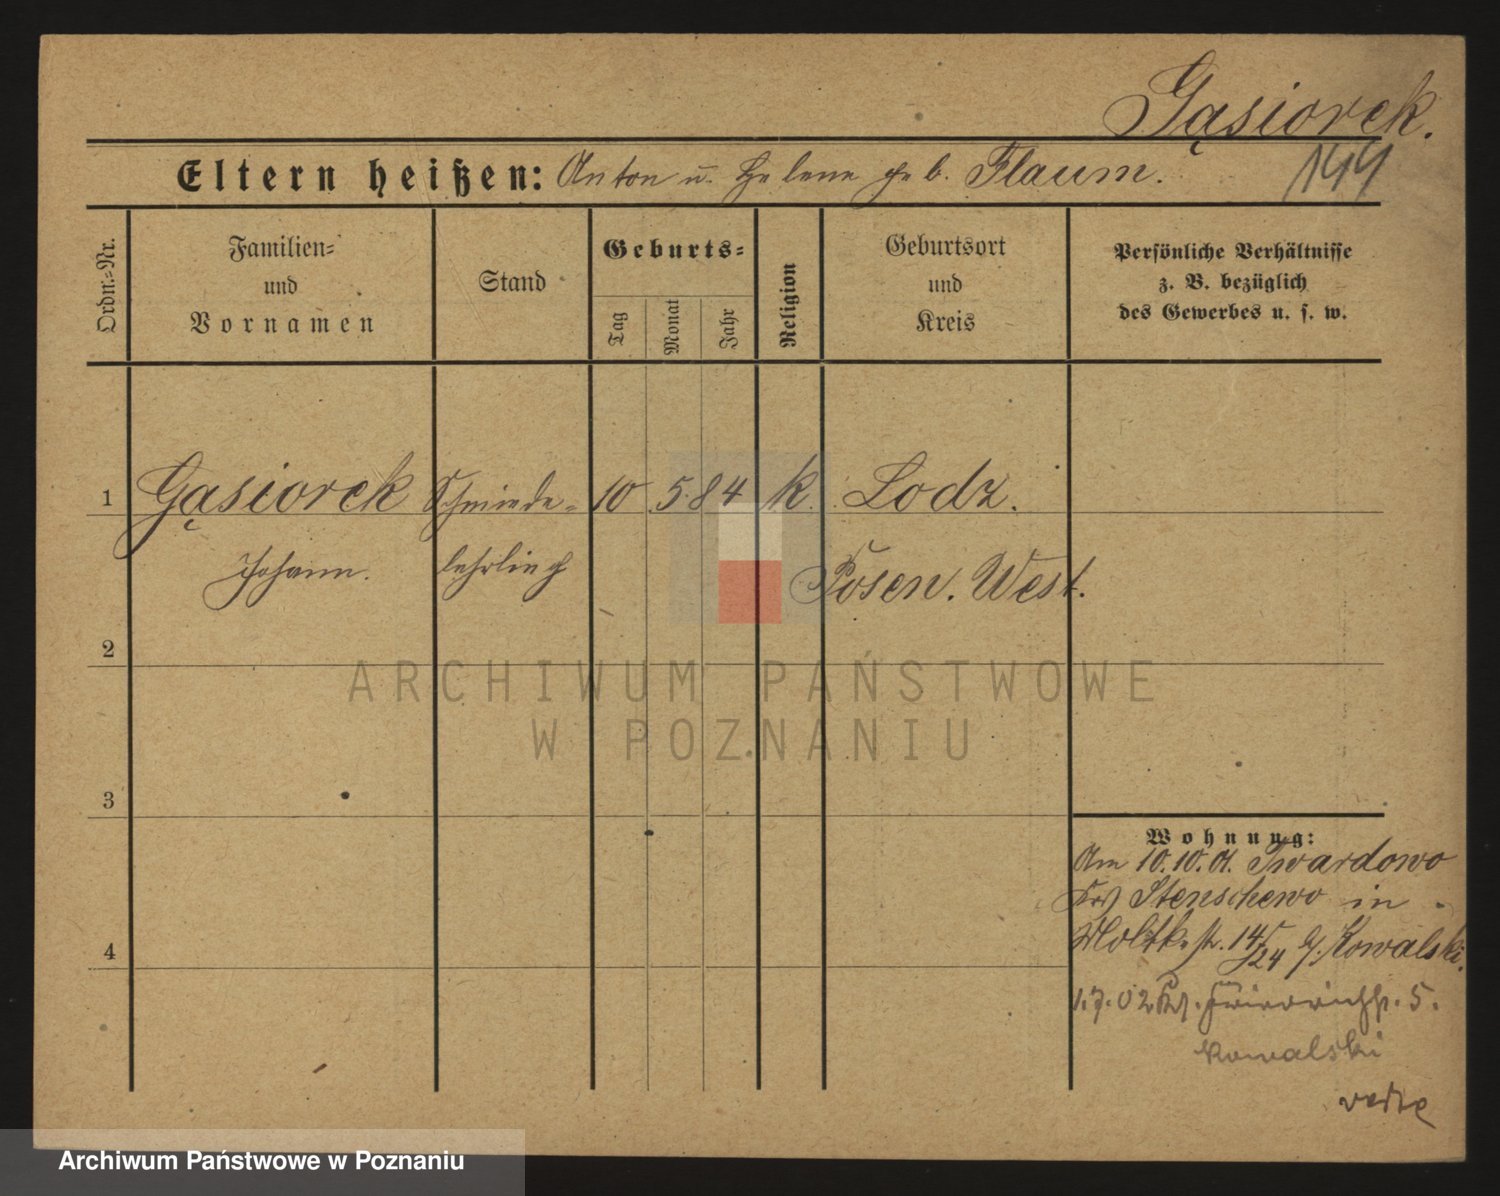 Gąsiorek.
144
Eltern heißen: Anton u. Helene geb. Flaum.
Ordn.-Nr.
Familien-
und
Vornamen
Stand
Geburts-
Tag
Monat
Jahr
Religion
Geburtsort
und
Kreis
Persönliche Verhältnisse
z. B. bezüglich
des Gewerbes u. s. w.
1 Gąsiorek Schmiede- 10 5 84 k. Lodz.
Johann. lehrling Posen. West.
2
3
4
Wohnung:
Am 10.10.01. Twardowo
Krs Stenschewo in
Moltkestr. 14/24 b/. Kowalski.
1.7.02 Friedrichstr. 5.
Kowalski
verte
ARCHIWUM PAŃSTWOWE
W POZNANIU
Archiwum Państwowe w Poznaniu